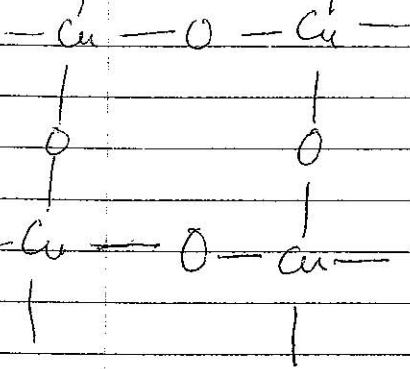 Cu — O — Cu —
O O
Cu — O — Cu —